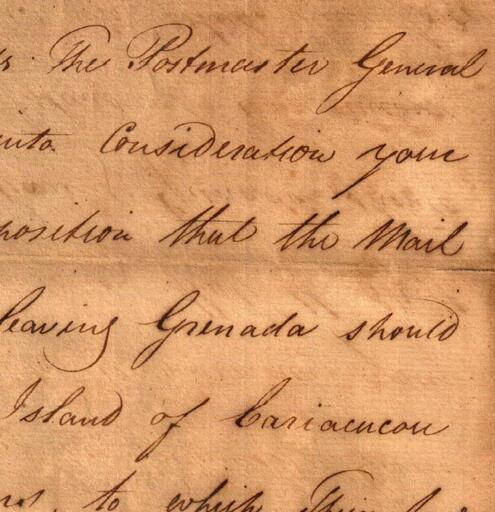 The Postmaster General
into Consideration your
position that the Mail
leaving Grenada should
Island of Cariacucou
to which